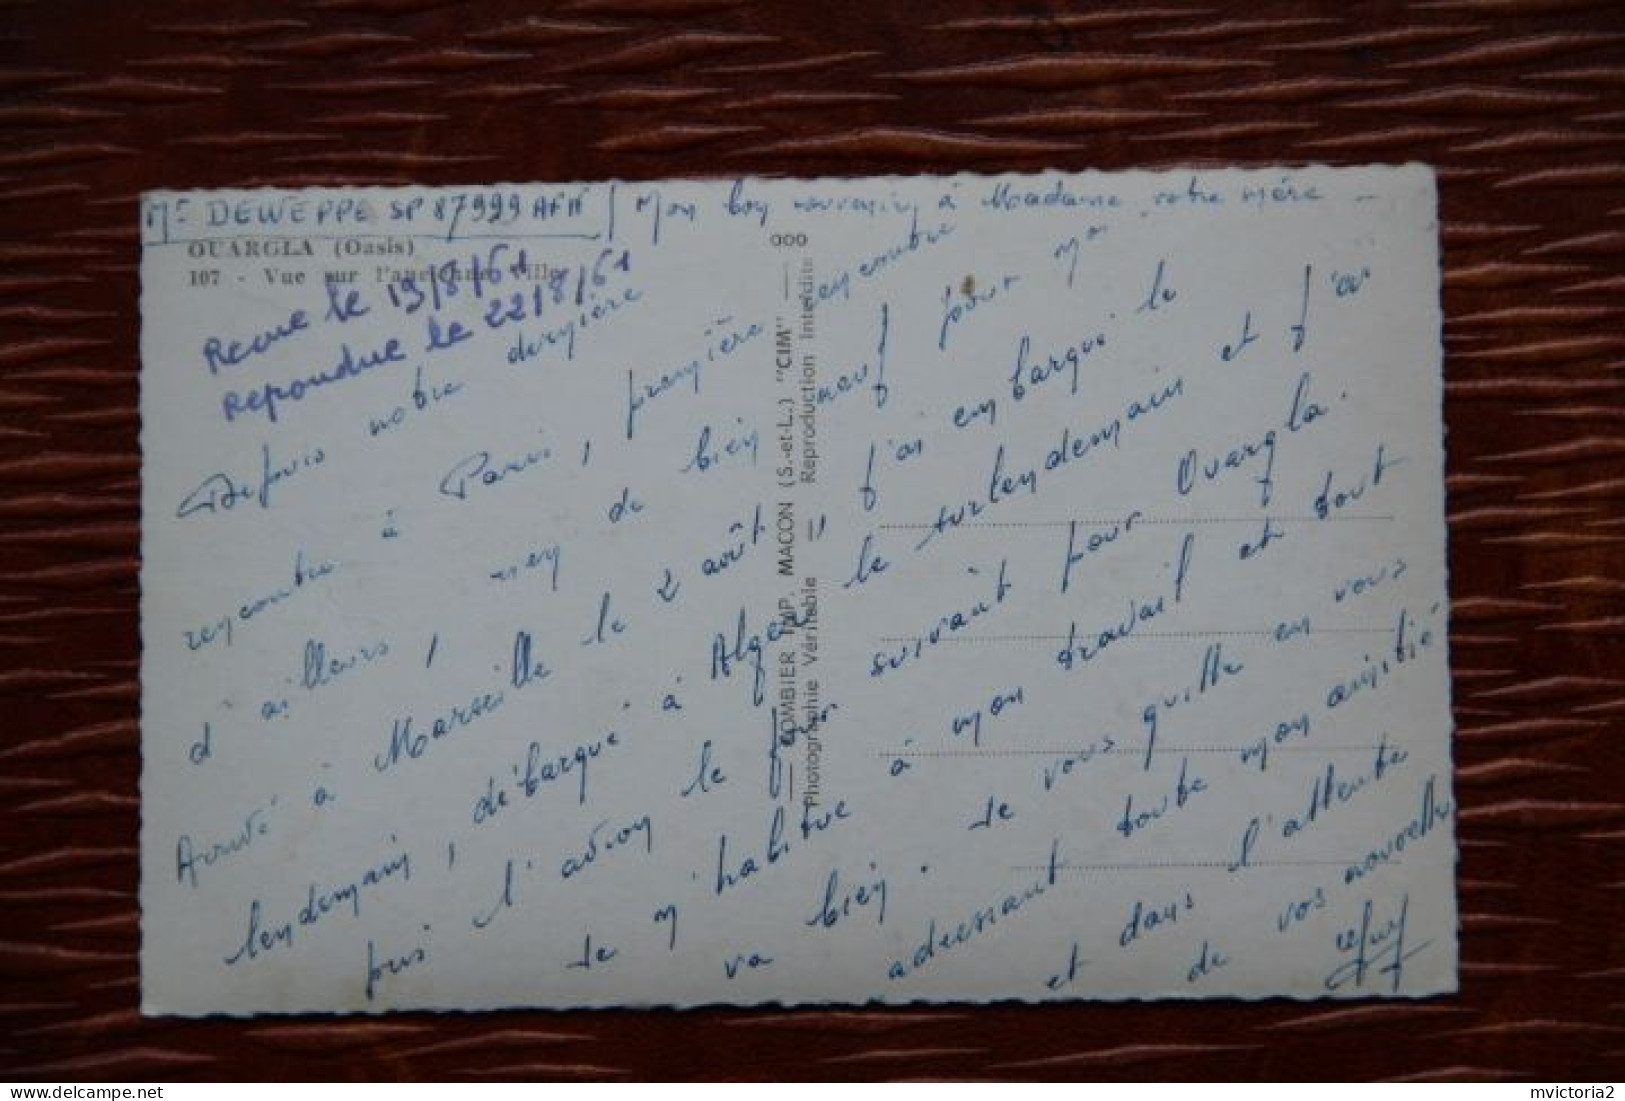 Mr DEWEPPE SP 87929 AFN / Mon bon souvenir à Madame votre mère -
OUARGLA (Oasis)
107 - Vue sur l'ancienne ville
Recue le 19/8/61
repondue le 22/8/61
Depuis notre dernière
rencontre à Paris, première ensembre
d'ailleurs, rien de bien neuf pour Mr
Arrivé à Marseille le 2 août, j'ai embarqué le
lendemain, débarqué à Alger le surlendemain et j'ai
pris l'avion le jour suivant pour Ouargla.
Je m'habitue à mon travail et tout
va bien. Je vous quitte en vous
adressant toute mon amitié
et dans l'attente
de vos nouvelles
000
COMBIER IMP. MACON (S.-et-L.) "CIM"
Photographie Véritable = Reproduction Interdite
mvictoria2